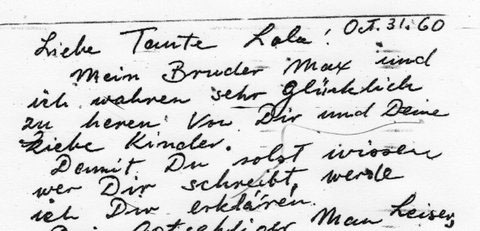 Oct. 31. 60
Liebe Tante Lola!
Mein Bruder Max und
ich wahren sehr Glücklich
zu heren Von Dir und Deine
Liebe Kinder.
Damit Du solst wissen
wer Dir schreibt, werde
ich Dir erklären.
Man Leiser,